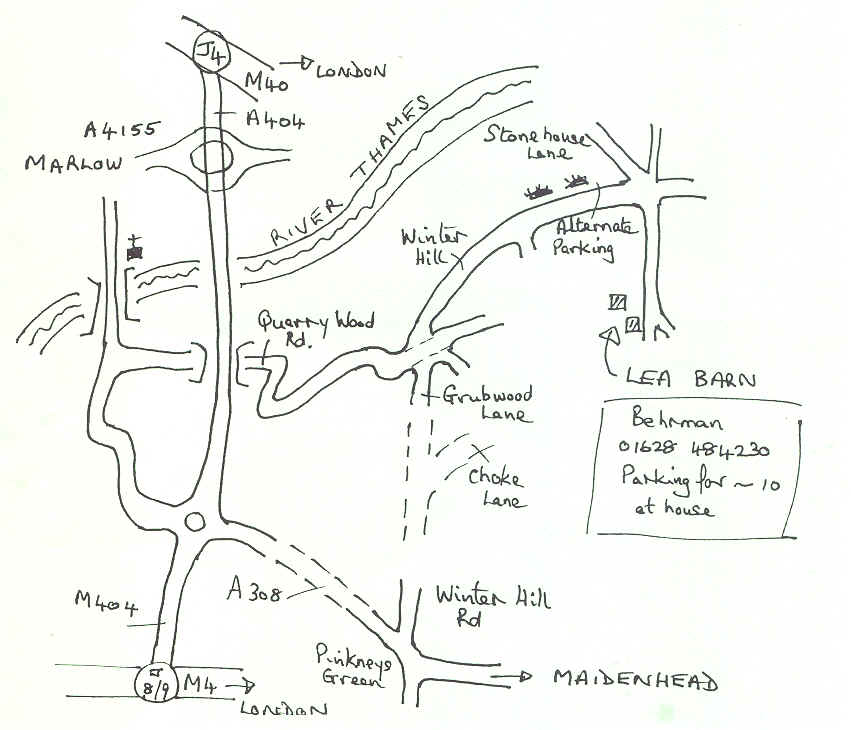 J4
M40
LONDON
A404
A4155
MARLOW
RIVER THAMES
Stonehouse
Lane
Alternate
Parking
Winter
Hill
Quarry Wood
Rd.
LEA BARN
Grubwood
Lane
Behrman
01628 484230
Parking for ~ 10
at house
Choke
Lane
A308
M404
Winter Hill
Rd
Pinkneys
Green
MAIDENHEAD
J
8/9
M4
LONDON